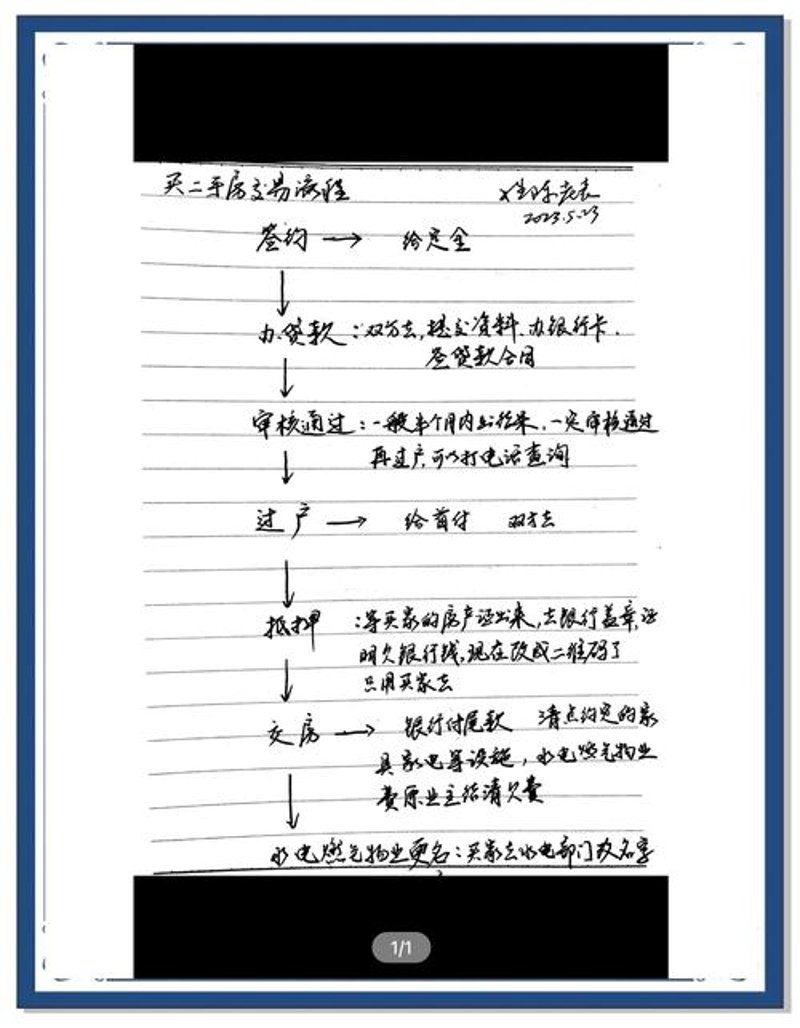 买二手房交易流程
2023.5.23
签约 → 给定金
办贷款：双方去，提交资料、办银行卡.
签贷款合同
审核通过：一般半个月内出结果，一定审核通过
再过户，可以打电话查询
过户 → 给首付 双方去
抵押 ：等买家的房产证出来，去银行盖章，证
明欠银行钱，现在改成二维码了
只用买家去
交房 → 银行付尾款 清点约定的家
具家电等设施，水电燃气物业
费原业主结清欠费
水电燃气物业更名：买家去水电部门改名字
1/1